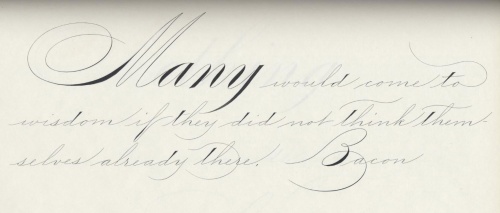 Many would come to
wisdom if they did not think them-
selves already there. Bacon